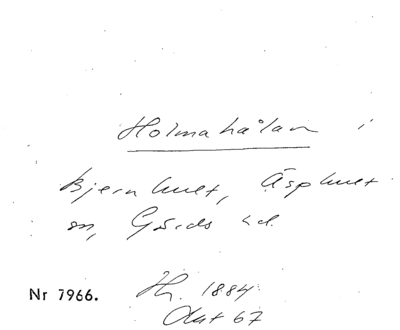 Holmahålan i
Bjernhult, Äsphult
sn, Gärds hd.
Nr 7966.
Hz. 1884
Okt 67